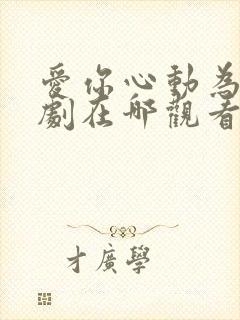 愛你心動為
劇在哪觀看
才廣學